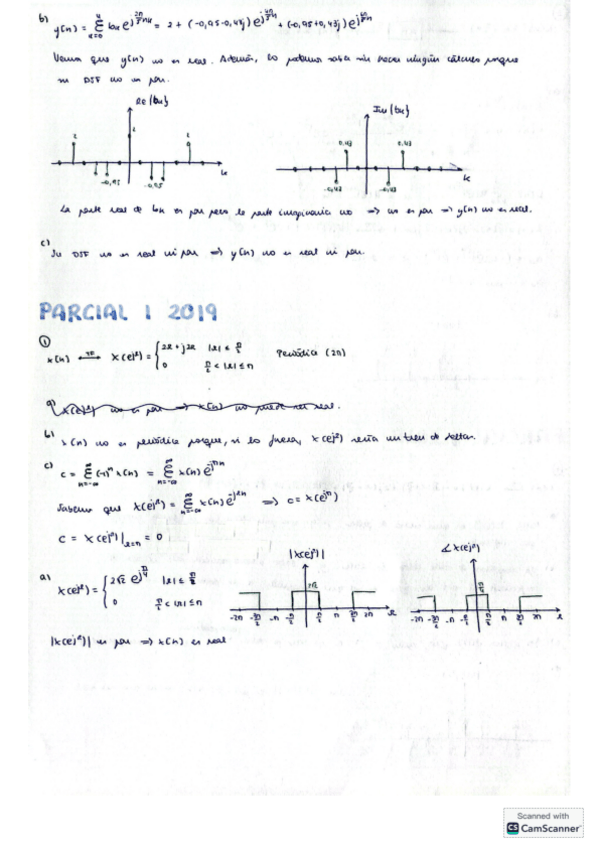 b) y(n) = Σ bk e^{j 2π/7 nk} = 2 + (-0,95-0,43j) e^{j 2π/7 n} + (-0,95+0,43j) e^{j n}
Vemos que y(n) no es real. Además, lo podemos saber sin hacer ningún cálculo porque
su DSF no es par.
Re{bk}
Im{bk}
2
2
2
-0,95
-0,95
k
0,43
0,43
-0,43
-0,43
k
La parte real de bk es par pero la parte imaginaria no => no es par => y(n) no es real.
c)
Su DSF no es real ni par => y(n) no es real ni par.
PARCIAL 1 2019
①
x(n) ⟷ X(e^{jΩ}) = { 2 + j2 |Ω| ≤ π/2
0 π/2 < |Ω| ≤ π
Periódica (2π)
a) X(e^{jΩ}) no es par => x(n) no puede ser real.
b) x(n) no es periódica porque, si lo fuera, X(e^{jΩ}) sería un tren de deltas.
c) C = Σ_{n=-∞}^{∞} (-1)^n x(n) = Σ_{n=-∞}^{∞} x(n) e^{jπn}
Sabemos que X(e^{jΩ}) = Σ_{n=-∞}^{∞} x(n) e^{jΩn} => C = X(e^{jπ})
C = X(e^{jΩ})|_{Ω=π} = 0
a) X(e^{jΩ}) = { 2√2 e^{j π/4} |Ω| ≤ π/2
0 π/2 < |Ω| ≤ π
|X(e^{jΩ})|
2√2
-2π -3π/2 -π -π/2 π/2 π 3π/2 2π Ω
∠X(e^{jΩ})
π/4
-2π -3π/2 -π -π/2 π/2 π 3π/2 2π Ω
|X(e^{jΩ})| es par => x(n) es real
Scanned with
CS CamScanner